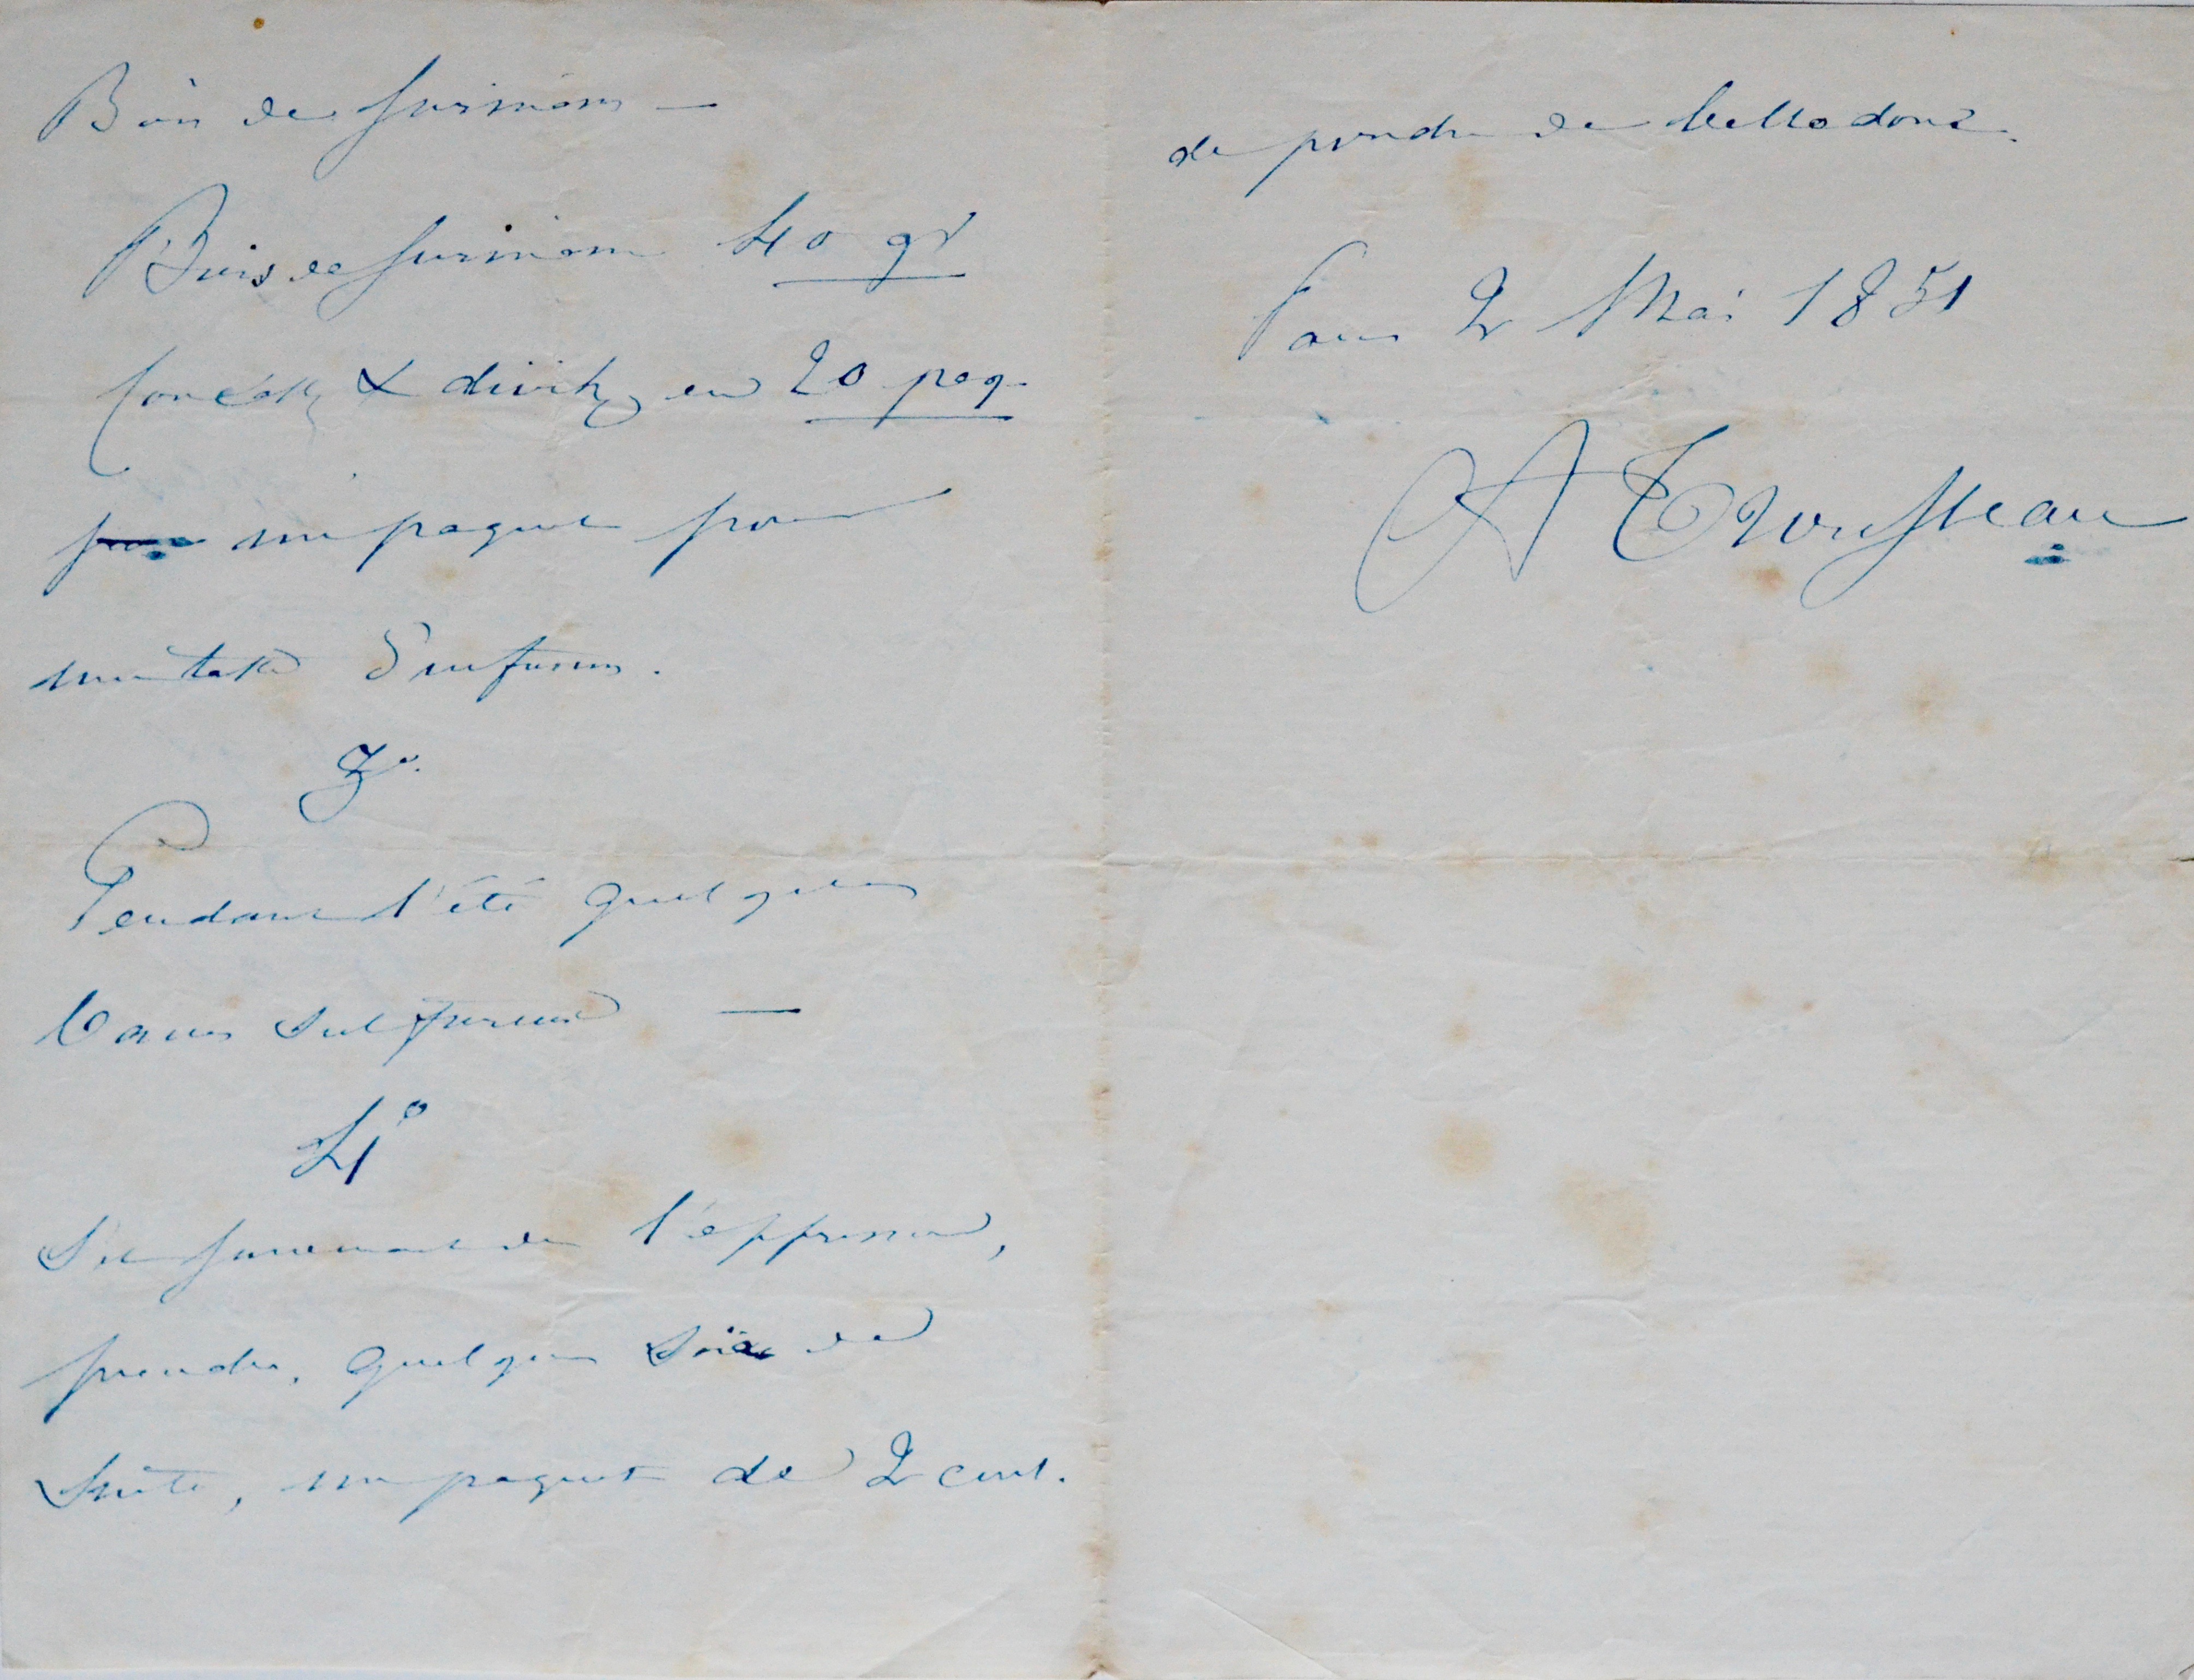 Bois de Surinam —
Bois de Surinam 40 gr
Concassez & divisez en 20 paq.
un paquet pour
une tasse d'infusion.
3°.
Pendant l'été quelques
bains sulfureux —
4°
S'il survenait de l'oppression,
prendre, quelques soirs de
suite, un paquet de 2 cent.
de poudre de belladone.
Paris 2 Mai 1851
A Trousseau